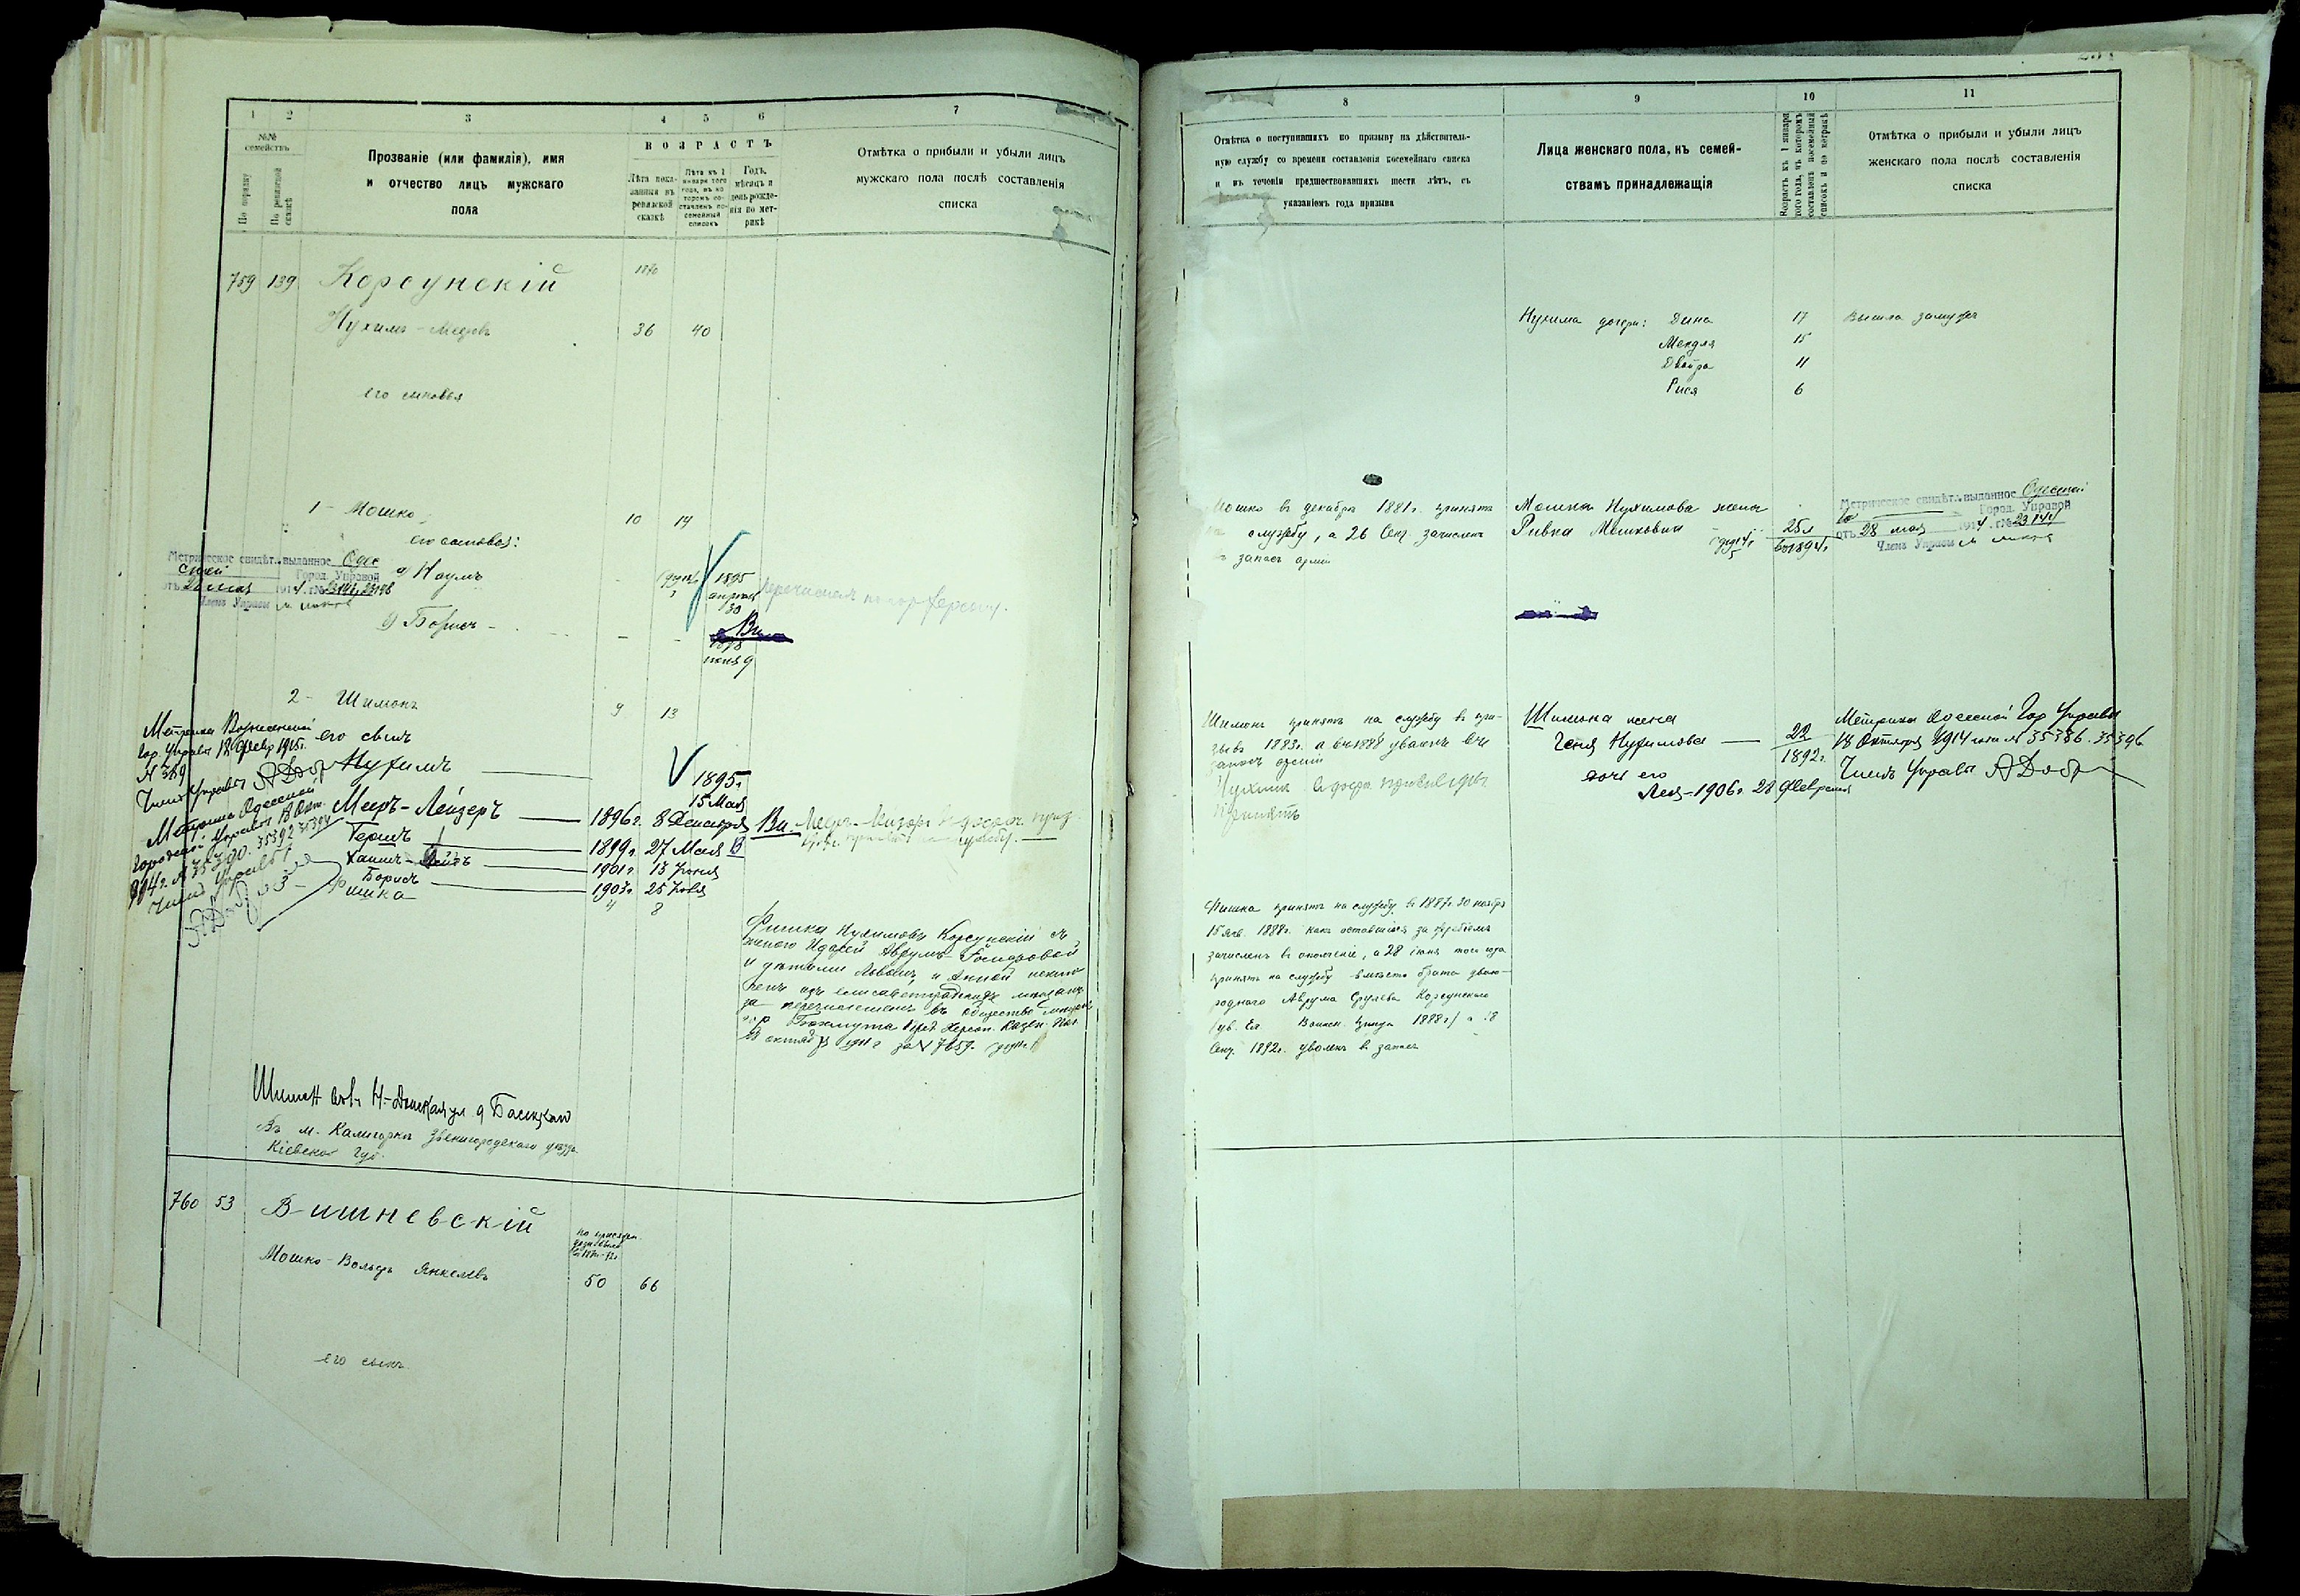 1 2 3 4 5 6 7
№№ семействъ
По порядку
По ревизской сказкѣ
Прозваніе (или фамилія), имя
и отчество лицъ мужскаго
пола
ВОЗРАСТЪ
Лѣта пока-
занныя въ
ревизской
сказкѣ
Лѣта къ 1
января того
года, въ ко
торомъ со-
ставленъ по-
семейный
списокъ
Годъ,
мѣсяцъ и
день рожде-
нія по мет-
рикѣ
Отмѣтка о прибыли и убыли лицъ
мужскаго пола послѣ составленія
списка
759 139 Корсунскій 1870
Нухимъ-Мееръ 36 40
его сыновья
1- Мошко 10 14
его сыновья:
Метрическое свидѣт. выданное Одес
ской Город. Управой
Членъ Управы
а) Наумъ 1895
апрѣля
30
Борисъ
іюня 9
2- Шимонъ 9 13
его сынъ
Метрика Вознесенской
Гор. Управы 18 Февр 1915г.
№ 369
Членъ Управы
Нухимъ 1895г.
15 Мая
Метрика Одесской
Городской Управы
1914г. № 35390. 35392 35394
Членъ Управы
Мееръ-Лейзеръ 1896г. 8 Декабря Вн.
Гершъ 1899г. 27 Мая
Хаимъ- 1901г. 13 Іюня
Борисъ 1903г. 25 Іюля
3- Фишка 4 8
Фишка Нухимовъ Корсунскій съ
женою Идесей Аврумъ-
и дѣтьми Львомъ и Анной исклю
ченъ изъ елисаветградскихъ мѣщанъ
за перечисленіемъ въ общество мѣщанъ
гор Бахмута Пред. Херсон. Казен. Пал.
28 октября 1911 г за № 7659.
Шимон
Въ м. Калигоркѣ Звенигородскаго уѣзда
Кіевской Губ.
760 53 Вишневскій
Мошко-Вольфъ Янкелевъ 50 66
его сынъ
8 9 10 11
Отмѣтка о поступившихъ по призыву на дѣйствитель-
ную службу со времени составленія посемейнаго списка
и въ теченіи предшествовавшихъ шести лѣтъ, съ
указаніемъ года призыва
Лица женскаго пола, къ семей-
ствамъ принадлежащія
Возрастъ къ 1 января
того года, въ которомъ
составленъ посемейный
списокъ и по метрикѣ
Отмѣтка о прибыли и убыли лицъ
женскаго пола послѣ составленія
списка
Нухима дочери: Дина 17 Вышла замужъ
Мендля 15
Двойра 11
Рися 6
Мошко въ декабрѣ 1881г. принятъ
на службу, а 26 Сен. зачисленъ
въ запасъ арміи
Мошка Нухимова жена
Ривка Мошковна 25л
въ 1894г.
Метрическое свидѣт. выданное Одесской
Город. Управой
отъ 28 мая 1914 г. № 23144
Членъ Управы
Шимонъ принятъ на службу въ при-
зывъ 1883г. а въ 1888 уволенъ въ
запасъ арміи
Шимона жена
Геня Нухимова 22
1892г.
дочь его
Лея-1906г. 28 Февраля
Метрика Одесской Гор Управы
18 Октября 1914 года № 35386. 35396
Членъ Управы
Фишка принятъ на службу въ 1887г. 30 ноября
15 янв. 1888г. какъ оставшійся за жребіемъ
зачисленъ въ ополченіе, а 28 іюня того года
принятъ на службу вмѣсто брата двою-
роднаго Аврума Срулева Корсунскаго
1888г.) а 18
Сен. 1892г. уволенъ въ запасъ